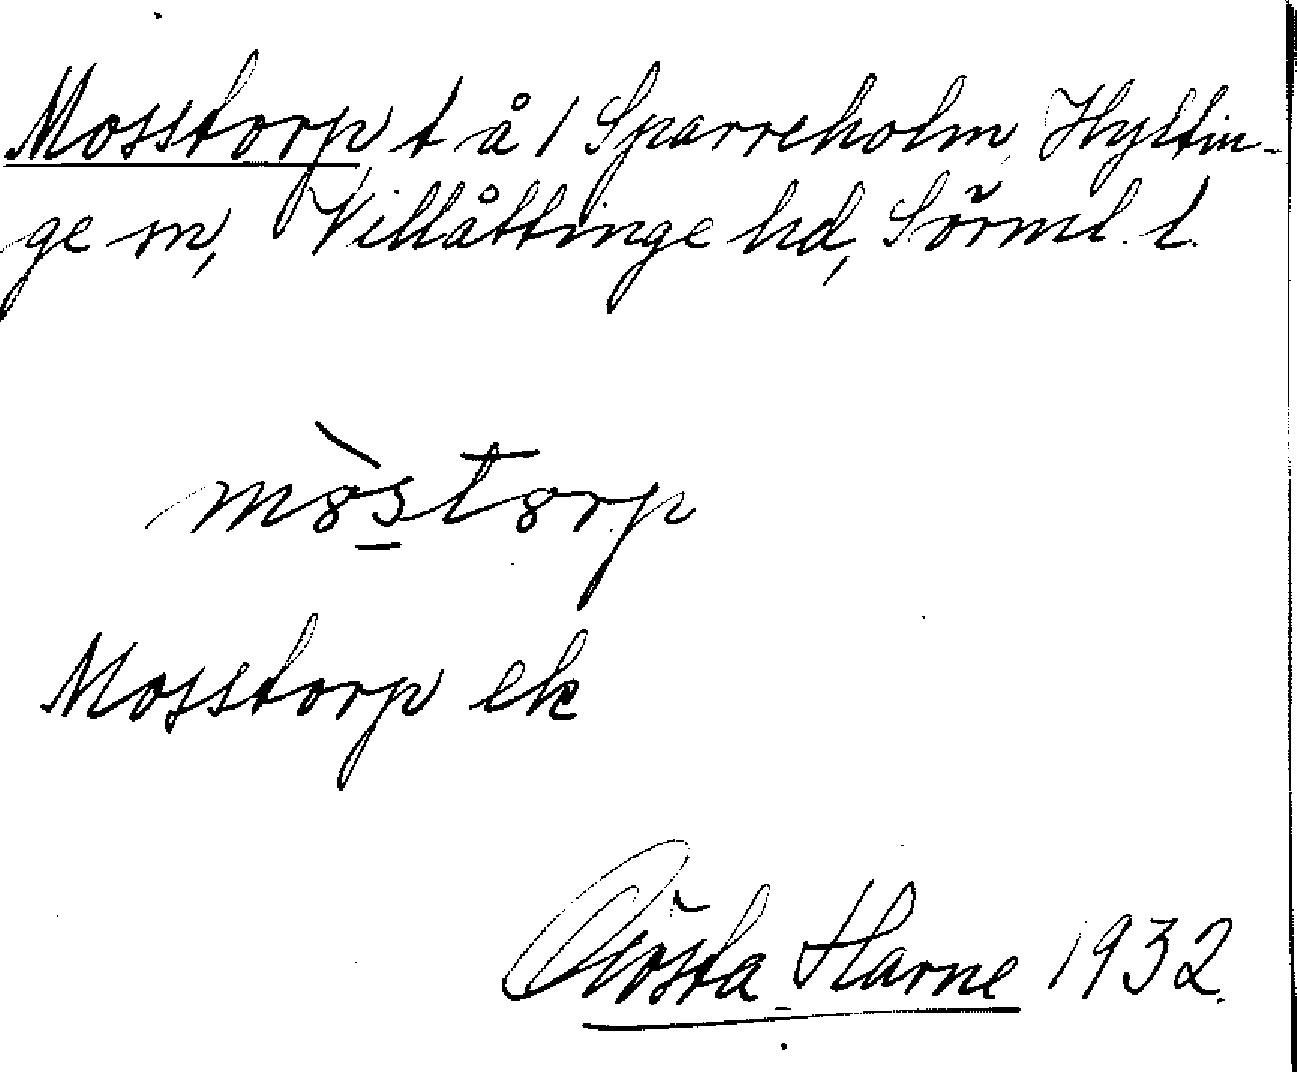 Mosstorp t å / Sparreholm, Hyltin-
ge sn, Villåttinge hd, Sörml. l.
mòstorp
Mosstorp ek
Gösta Harne 1932.